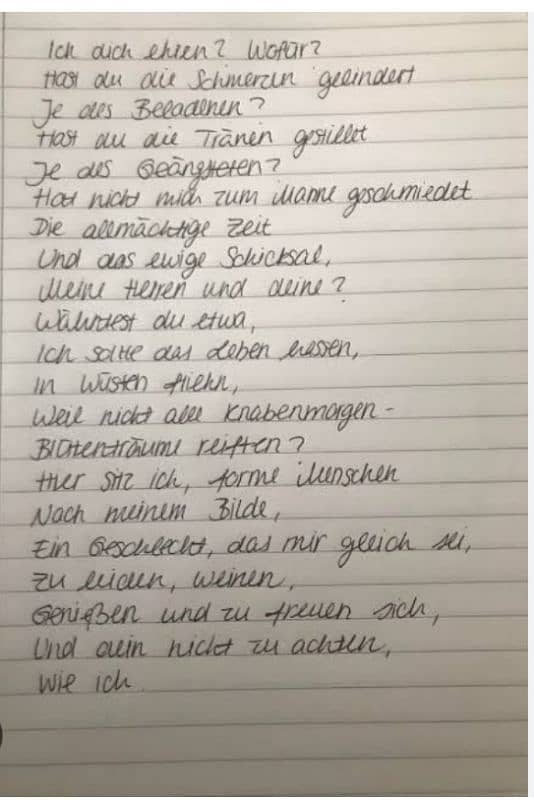 Ich dich ehren? Wofür?
Hast du die Schmerzen gelindert
Je des Beladenen?
Hast du die Tränen gestillet
Je des Geängsteten?
Hat nicht mich zum Manne geschmiedet
Die allmächtige Zeit
Und das ewige Schicksal,
Meine Herren und deine?
Wähntest du etwa,
Ich sollte das Leben hassen,
In Wüsten fliehn,
Weil nicht alle Knabenmorgen-
Blütenträume reiften?
Hier sitz ich, forme Menschen
Nach meinem Bilde,
Ein Geschlecht, das mir gleich sei,
Zu leiden, weinen,
Genießen und zu freuen sich,
Und dein nicht zu achten,
Wie ich.